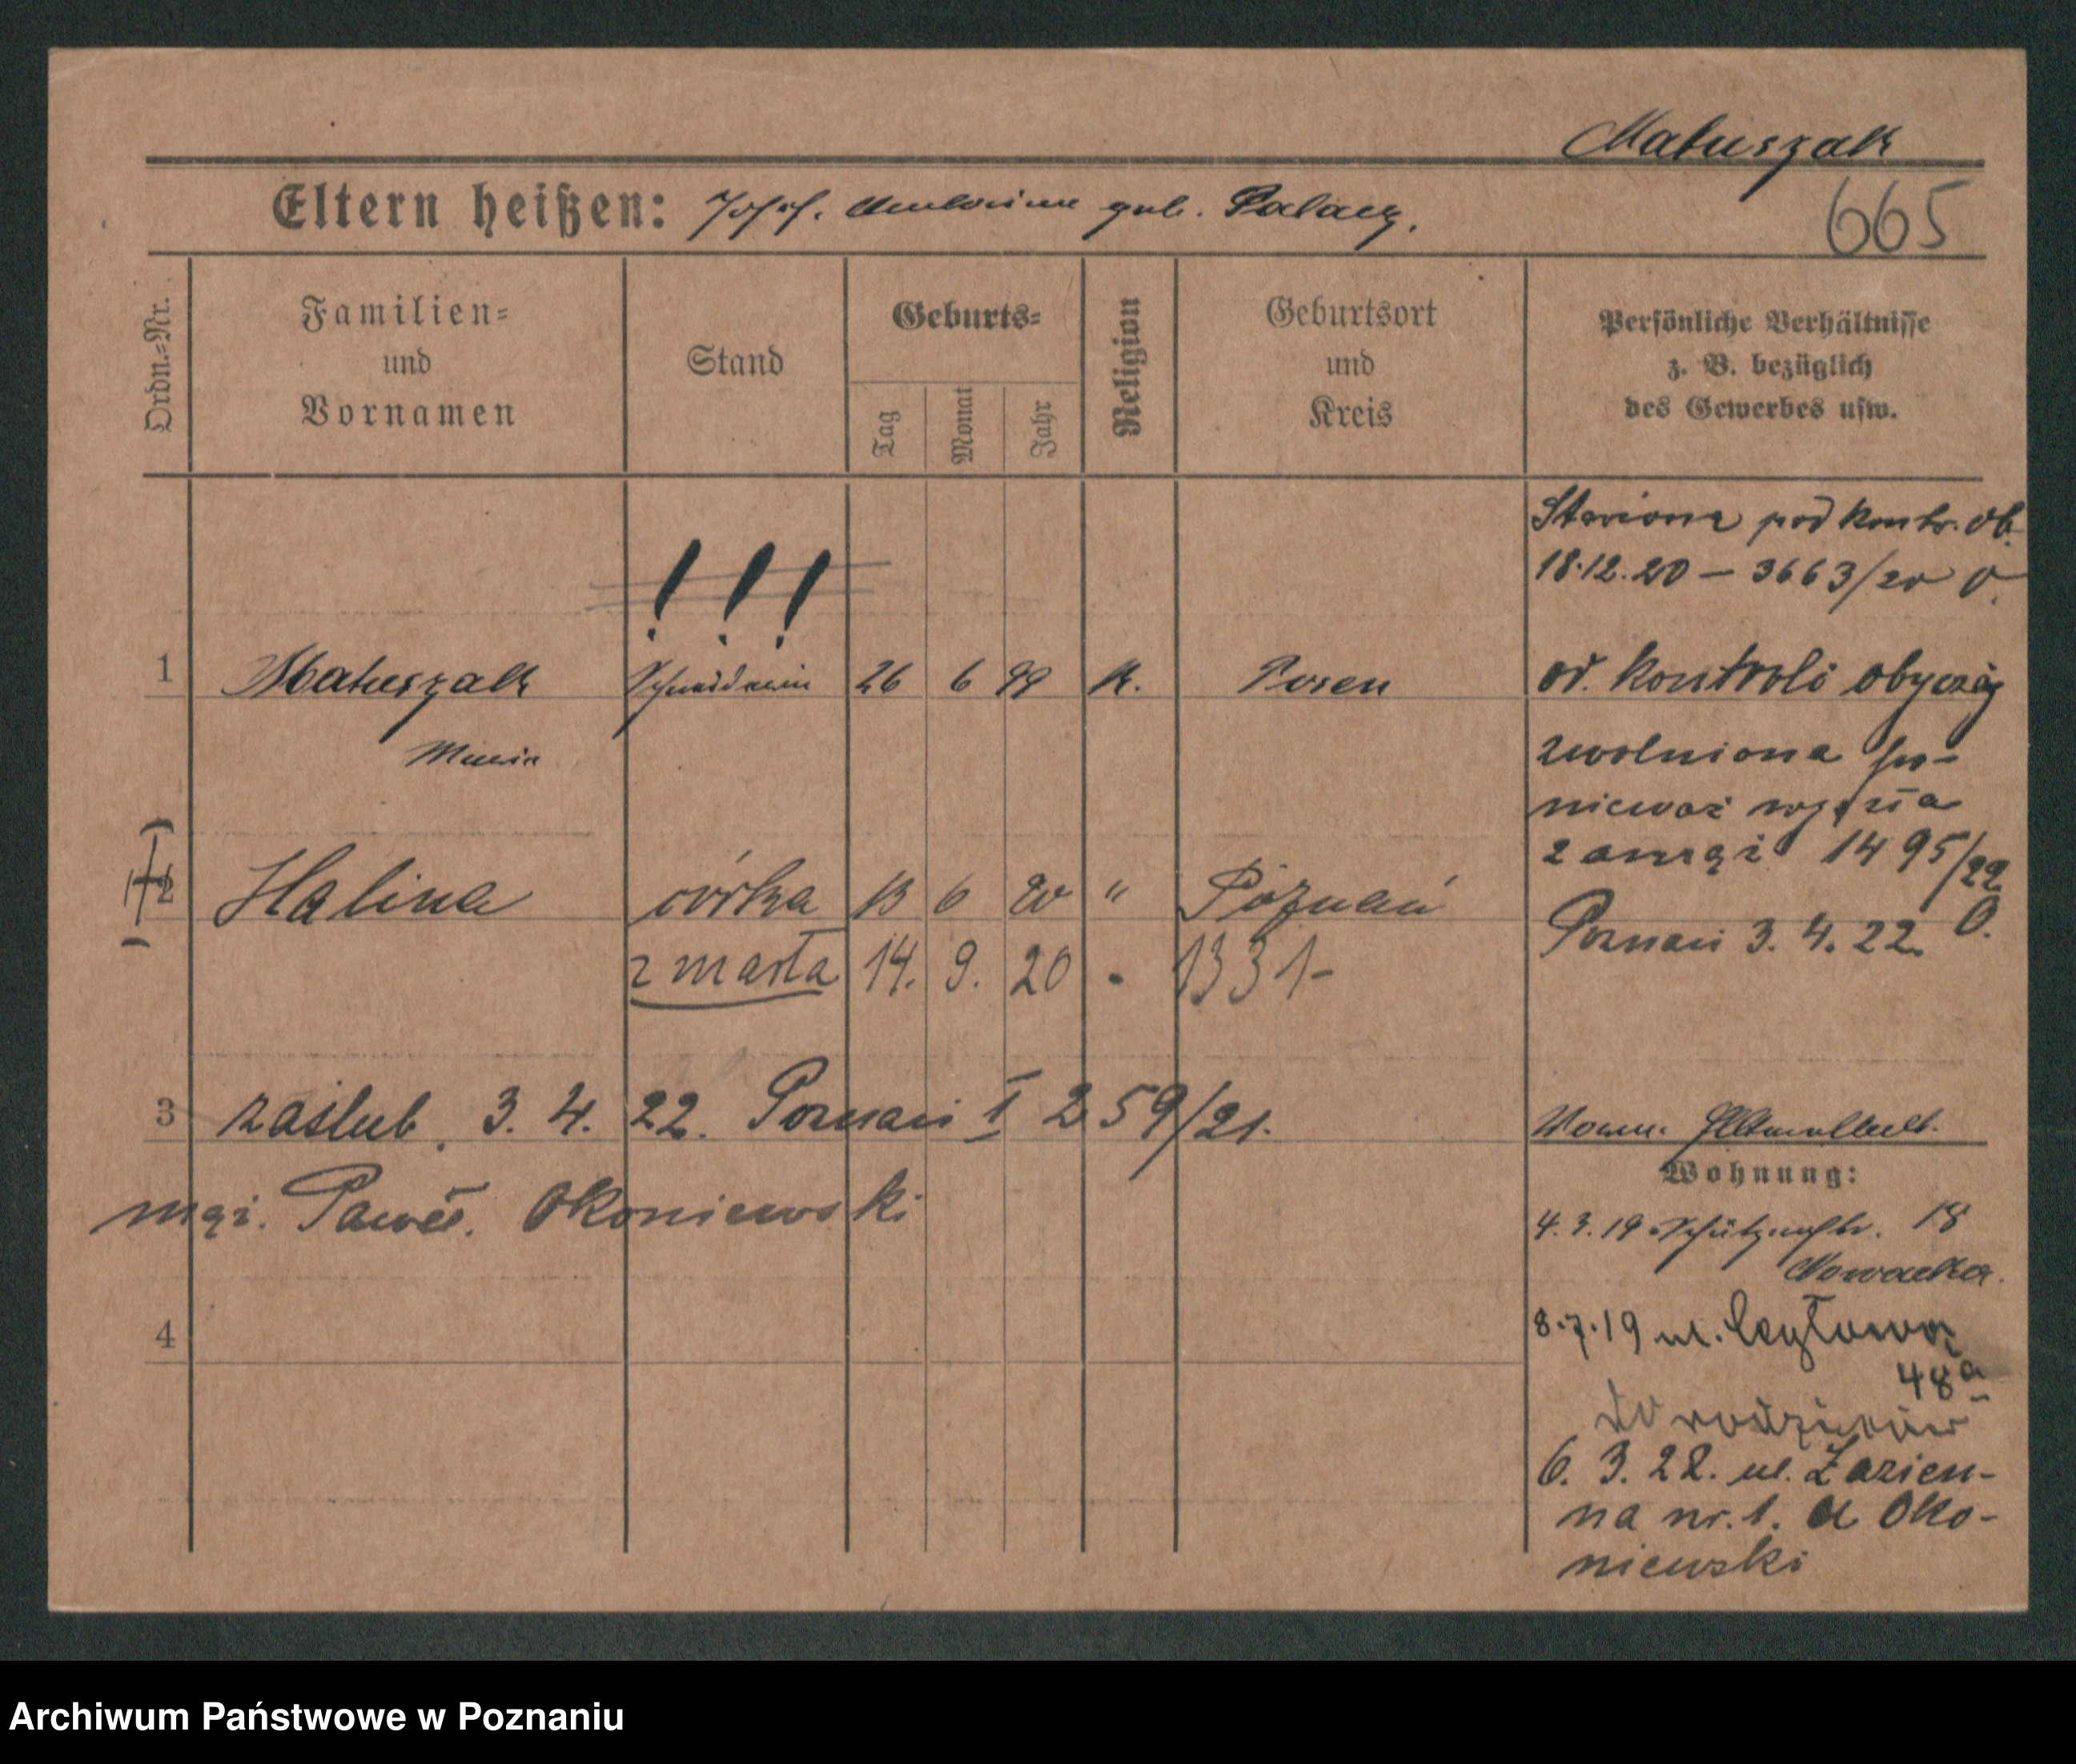 Matuszak
Eltern heißen: Josef. Antonine geb. Palacz.
665
Ordn.=Nr.
Familien=
und
Vornamen
Stand
Geburts=
Tag
Monat
Jahr
Religion
Geburtsort
und
Kreis
Persönliche Verhältnisse
z. B. bezüglich
des Gewerbes usw.
pod kontr. ob.
18.12.20 — 3663/20
!!!
1 Matuszak Schneiderin 26 6 99 K. Posen
Maria
od. kontroli obyczaj
zwolniona po-
nieważ wyszła
zamąż 1495/22
Poznań 3. 4. 22.
2 Halina córka 13 6 20 " Poznań
zmarła 14. 9. 20 1331-
3 zaślub. 3. 4. 22. Poznań I 259/21.
mąż. Paweł. Okoniewski
4
Wohnung:
4. 3. 19 Schützenstr. 18
Nowacka.
8.7.19 ul.
48a
do rodziców
6. 3. 22. ul. Łazien-
na nr. 1. a Oko-
niewski
Archiwum Państwowe w Poznaniu